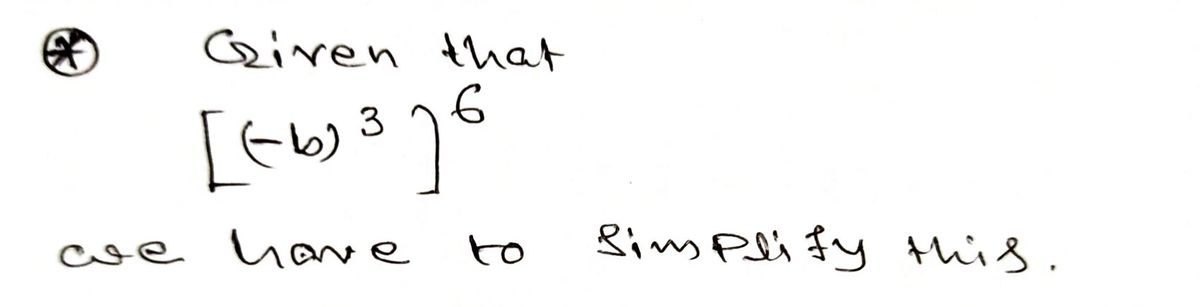 ⊛ Given that
[(-b)³]⁶
we have to simplify this.